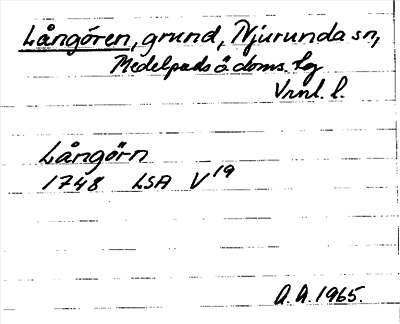 Långören, grund, Njurunda sn,
Medelpads ö. doms. hg
Vrnl. l.
Långörn
1748 LSA V19
A.A. 1965.